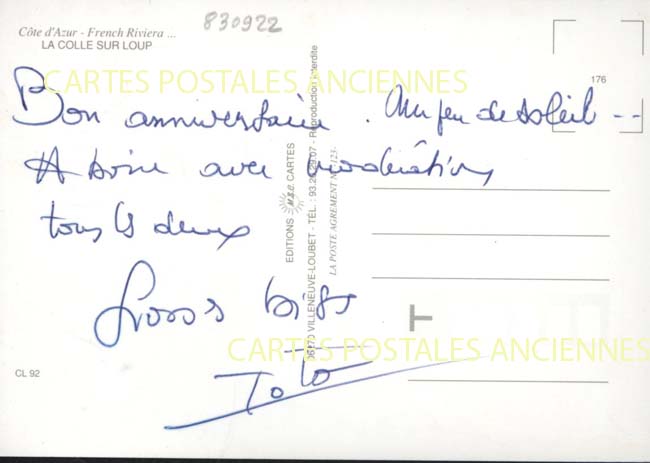 830922
Côte d'Azur - French Riviera ...
LA COLLE SUR LOUP
176
CARTES POSTALES ANCIENNES
Bon anniversaire. Un peu de soleil --
A boire avec modération
tous les deux
Gross bises
Toto
EDITIONS M.S.E. CARTES
06270 VILLENEUVE-LOUBET - TÉL. : 93.20.29.07 - Reproduction interdite
LA POSTE AGREMENT N°
CARTES POSTALES ANCIENNES
CL 92